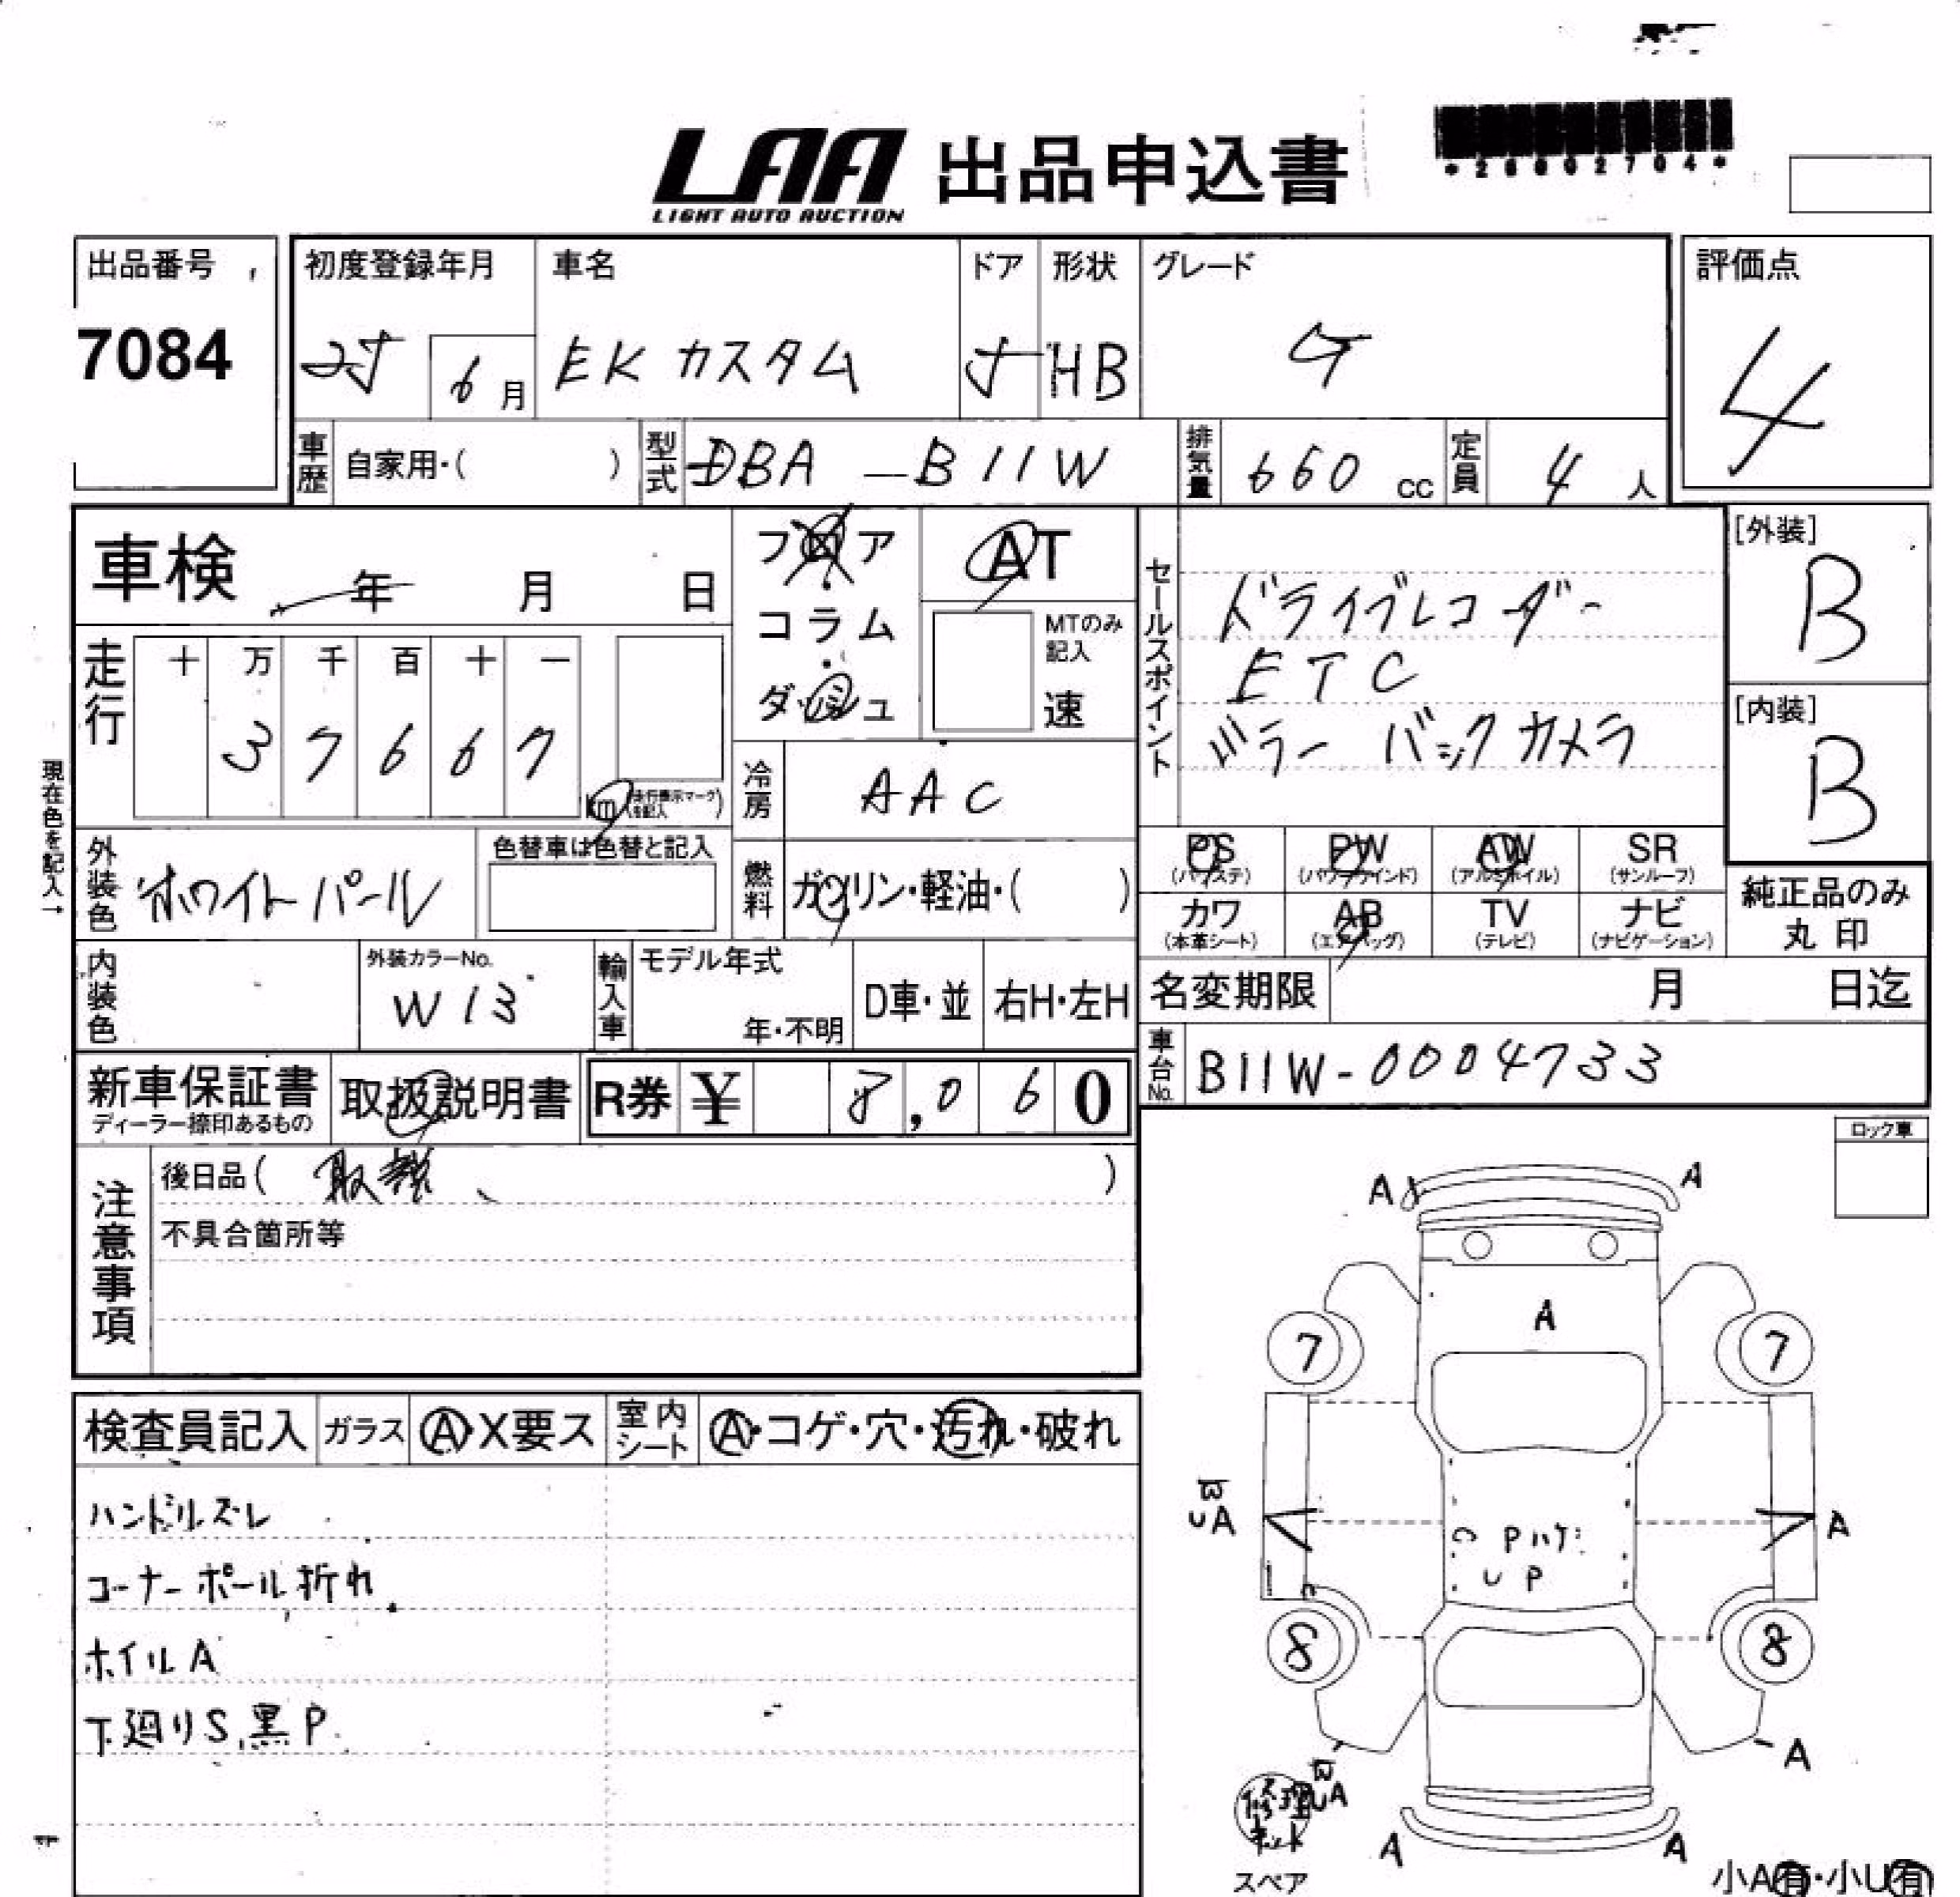 LAA 出品申込書
LIGHT AUTO AUCTION
出品番号 初度登録年月 車名 ドア 形状 グレード 評価点
7084 25 6月 EK カスタム 5 HB G 4
車歴 自家用・( ) 型式 DBA-B11W 排気量 660 cc 定員 4 人
車検 年 月 日
フロア・コラム・ダッシュ
AT
MTのみ記入
速
セールスポイント
ドライブレコーダー
ETC
ミラー バックカメラ
[外装]
B
[内装]
B
走行 十 万 千 百 十 一
3 7 6 6 7
km (走行表示マークを記入)
冷房 AAC
現在色を記入→
外装色 ホワイトパール
色替車は色替と記入
燃料 ガソリン・軽油・( )
PS (パワステ) PW (パワーウインド) AW (アルミホイル) SR (サンルーフ)
カワ (本革シート) AB (エアバッグ) TV (テレビ) ナビ (ナビゲーション)
純正品のみ
丸印
内装色
外装カラーNo.
W13
輸入車 モデル年式
年・不明
D車・並 右H・左H
名変期限 月 日迄
車台No. B11W-0004733
新車保証書
ディーラー捺印あるもの
取扱説明書
R券 ¥ 8,060
注意事項
後日品( 取説、 )
不具合箇所等
ロック車
検査員記入 ガラス A・X要ス 室内シート A・コゲ・穴・汚れ・破れ
ハンドルズレ
コーナーポール折れ
ホイルA
下廻りS,黒P
A A
A
7 7
UA A
Pハゲ
UP
8 8
A
UA
修理
A A
スペア
小A有・小U有